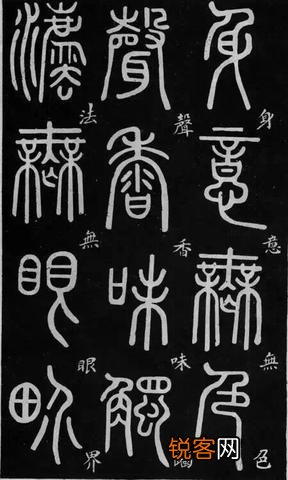 身意無色
身意無色
聲香味觸
聲香味觸
法無眼界
法無眼界
锐客网